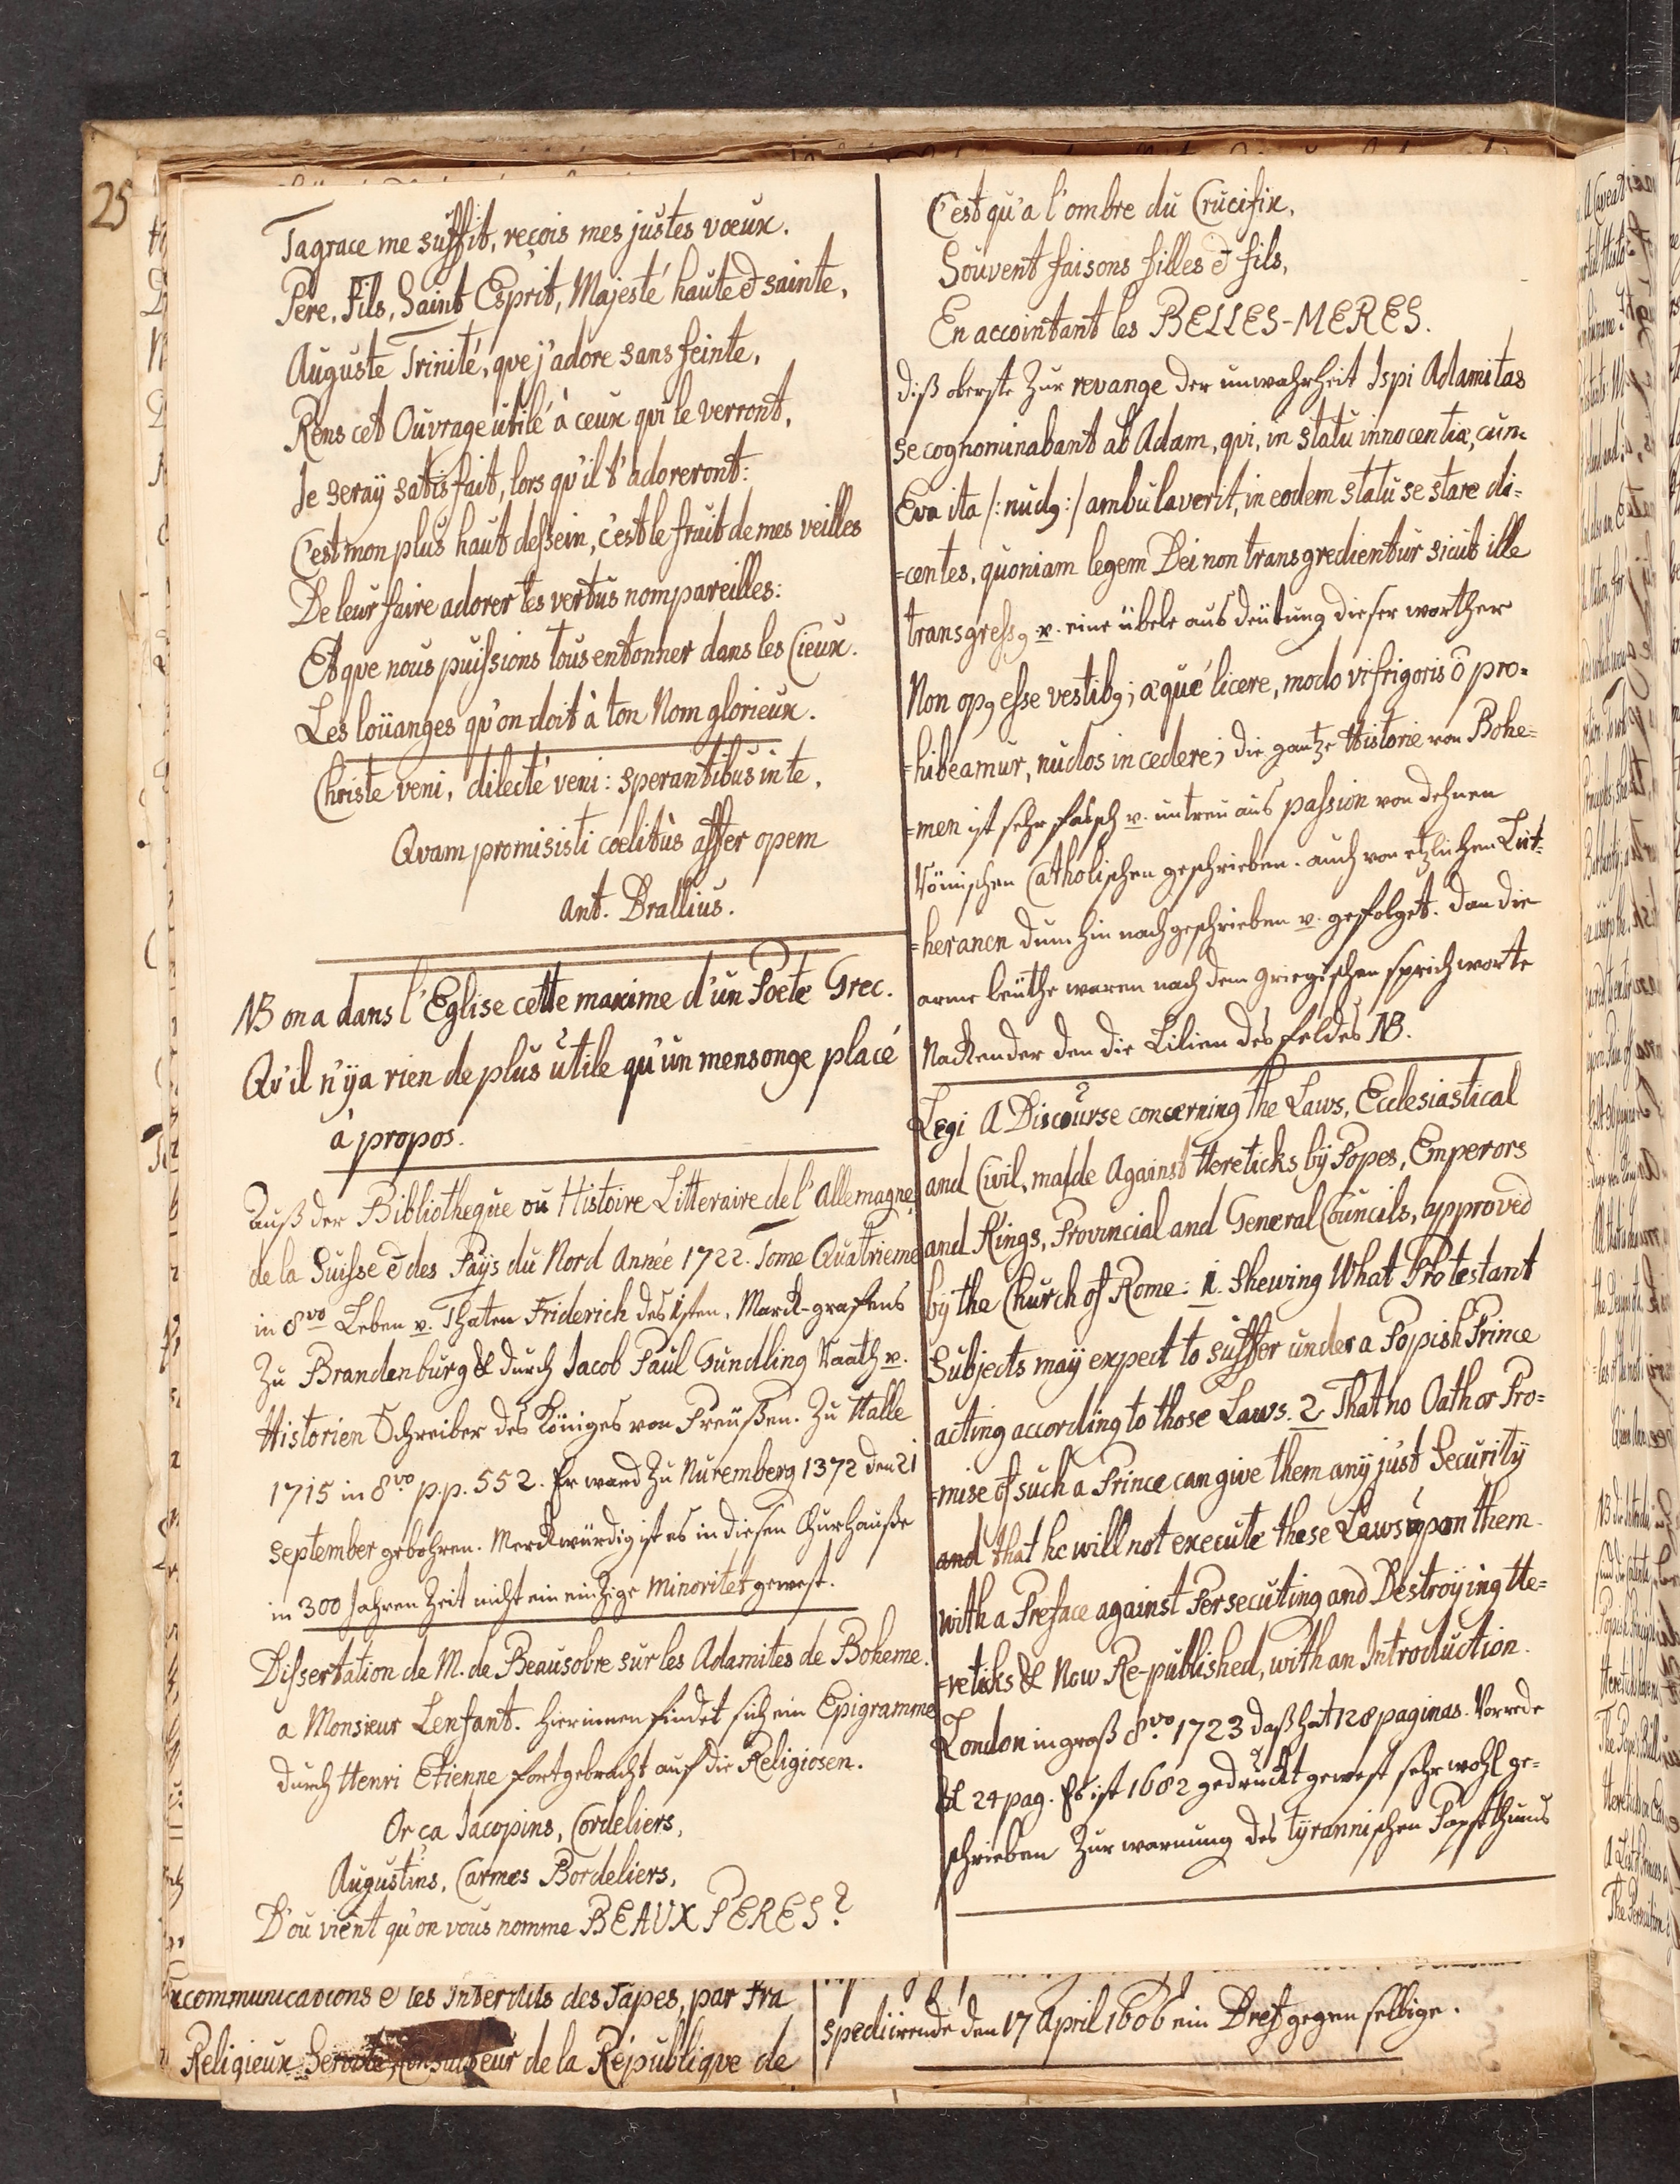 25
Ta grace me suffit, reçois mes justes vœux.
Pere, Fils, Saint Esprit, Majesté haute et sainte,
Auguste Trinité, que j'adore sans feinte,
Rens cet Ouvrage utile à ceux qui le verront,
Je seraÿ satisfait, lors qu'il t'adoreront:
C'est mon plus haut dessein, c'est le fruit de mes veilles
De leur faire adorer tes vertus nompareilles:
Et que nous puissions tous entonner dans les Cieux.
Les loüanges qu'on doit à ton Nom glorieux.
Christe veni, dilecté veni: sperantibus in te,
Qvam promisisti cœlitùs affer opem
Ant. Drallius.
NB on a dans l'Eglise cette maxime d'un Poete Grec.
Qv'il n'ÿa rien de plus utile qu'un mensonge placé
à propos.
Auß der Bibliotheque ou Histoire Litteraire de l'Allemagne,
de la Suisse & des Paÿs du Nord Année 1722. Tome Quatrieme
in 8vo Leben v. Thaten Friderich des 1sten, Marck-grafens
zu Brandenburg & durch Jacob Paul Gundling Raath v.
Historien Schreiber des Königes von Preußen. Zu Halle
1715 in 8vo p.p. 552. Er ward zu Nuremberg 1372 den 21
september gebohren. Merckwürdig ist es in diesen Churhauße
in 300 Jahren Zeit nicht ein einzige minoritet gewest.
Dissertation de M. de Beausobre sur les Adamites de Boheme.
a Monsieur Lenfant. hierinnen findet sich ein Epigramme
durch Henri Etienne fortgebracht auf die Religiosen.
Or ca Jacopins, Cordeliers,
Augustins, Carmes Bordeliers,
D'ou vient qu'on vous nomme BEAUX PERES?
C'est qu'a l'ombre du Crucifix,
Souvent faisons filles et fils,
En accointant les BELLES-MERES.
diß oberste zur revange der unwahrheit Ispi Adamitas
se cognominabant ab Adam, qvi, in statu innocentiæ, cum
Eva ita /:nudꝯ:/ ambulaverit, in eodem statu se stare di=
=centes, quoniam legem Dei non transgredientur sicut ille
transgressꝯ v. eine übele ausdeütung dieser worther
Non opꝯ esse vestibꝯ; æqué licere, modo vi frigoris ō pro=
=hibeamur, nudos incedere; die gantze Historie von Bohe=
=men ist sehr falsch v. untreu aus passion von dehnen
Römischen Catholischen geschrieben. auch von etzlichen Lut=
=heranen dum hin nachgeschrieben v. gefolget. dan die
arme leuthe waren nach dem Griegischen sprichworte
Nackender den die Lilien des feldes NB.
Legi A Discourse concerning the Laws, Ecclesiastical
and Civil, malde Against Hereticks by Popes, Emperors
and Kings, Provincial and General Councils, approved
by the Church of Rome: 1. Shewing What Protestant
Subjects maÿ expect to suffer under a Popish Prince
acting according to those Laws. 2 That no Oath or Pro=
=mise of such a Prince can give them anÿ just Security
and that he will not execute these Laws upon them.
with a Preface against Persecuting and Destroÿing He=
=reticks & Now Re-published, with an Introduction.
London in groß 8vo 1723 daß hat 128 paginas. Vorrede
& 24 pag. Es ist 1682 gedruckt gewest sehr wohl ge=
schrieben zur warnung des tÿrannischen Papstthums
communications e les Interdits des Papes, par Fra
Religieux Servite, Consulteur de la Republique de
spediirende den 17 April 1606 ein Bref gegen selbige.